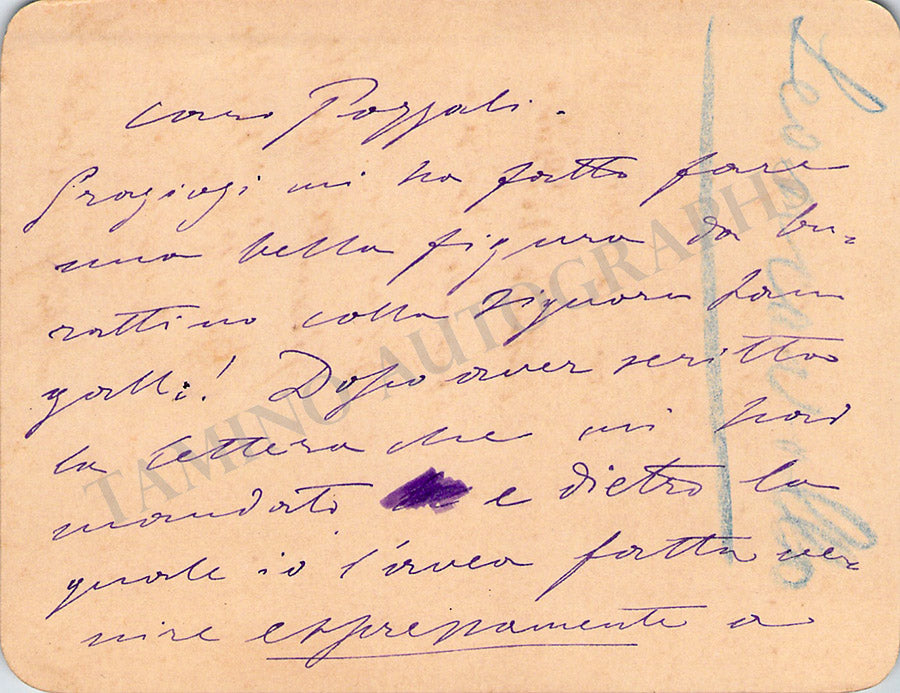 caro Pozzali.
mi ha fatto fare
una bella figura da bu=
rattino colla Signora San
galli! Dopo aver scritto
la lettera che mi hai
mandato e dietro la
quale io l'avea fatta ve=
nire espressamente a
Leoncavallo
TAMINO AUTOGRAPHS